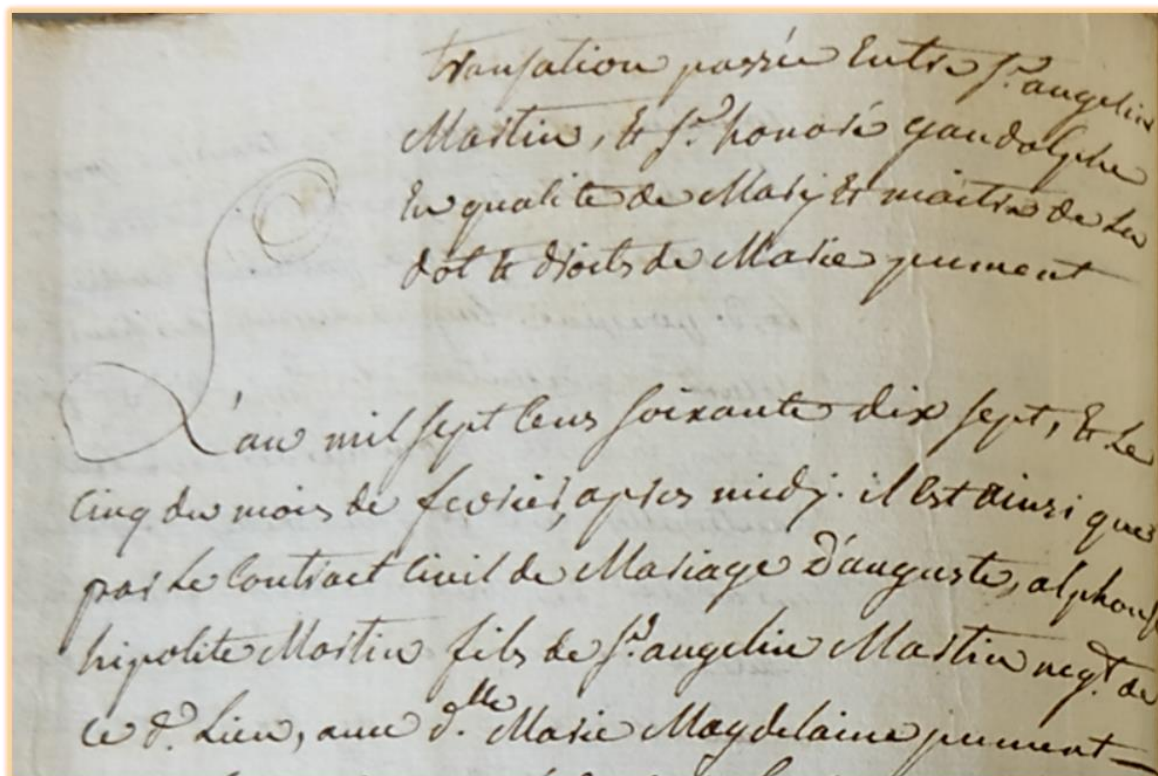 transation passée Entre sr. angelin
Martin, & sr. honoré gandolphe
En qualite de Mary Et maitre de La
dot & droits de Marie piment
L'an mil sept Cens soixante dix sept, & Le
Cinq du mois de fevrier, apres midy. il Est ainsi que
par Le Contract Civil de Mariage D'auguste, alphonse
hipolite Martin fils de sr. angelin Martin negt. de
ce d. Lieu, avec d.lle Marie Magdelaine piment